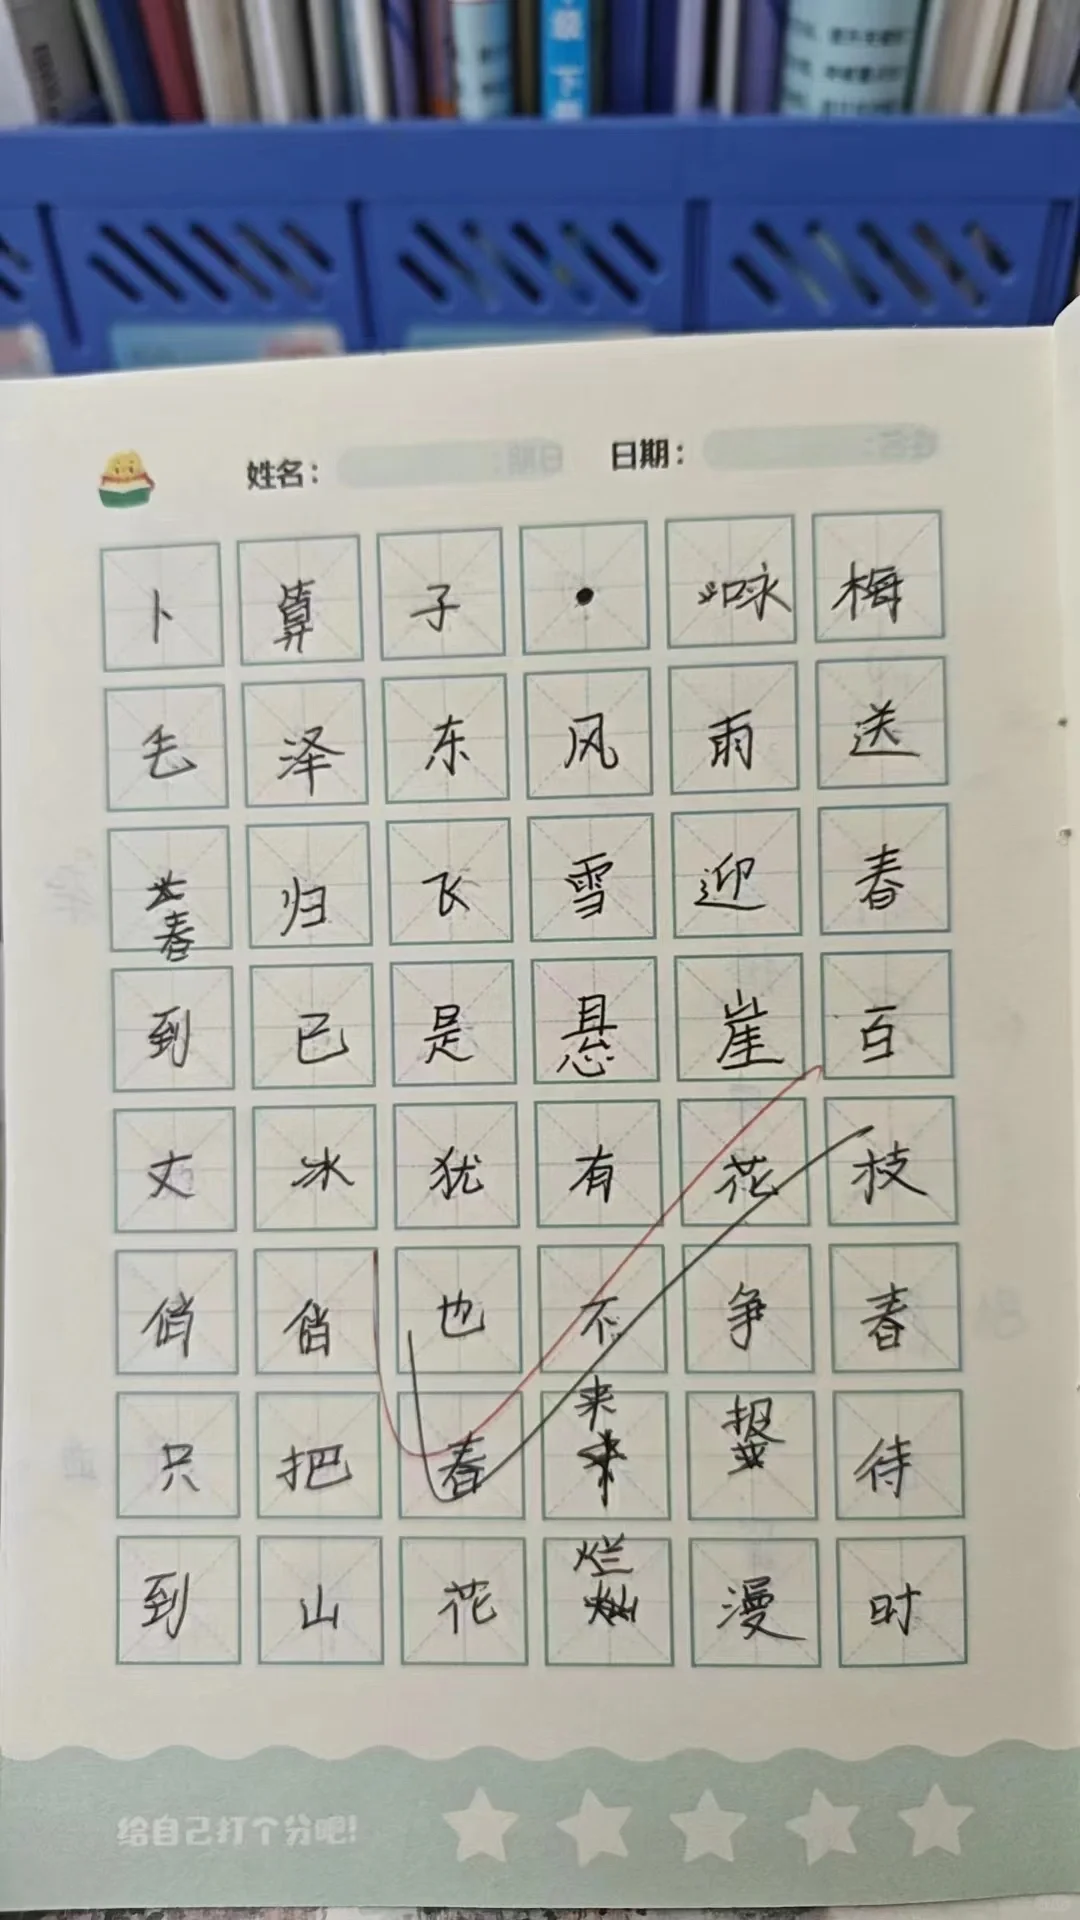 级 下册
姓名： 日期：
卜算子·咏梅
毛泽东风雨送
春归飞雪迎春
到已是悬崖百
丈冰犹有花枝
俏俏也不争春
只把春来报待
到山花烂漫时
给自己打个分吧！